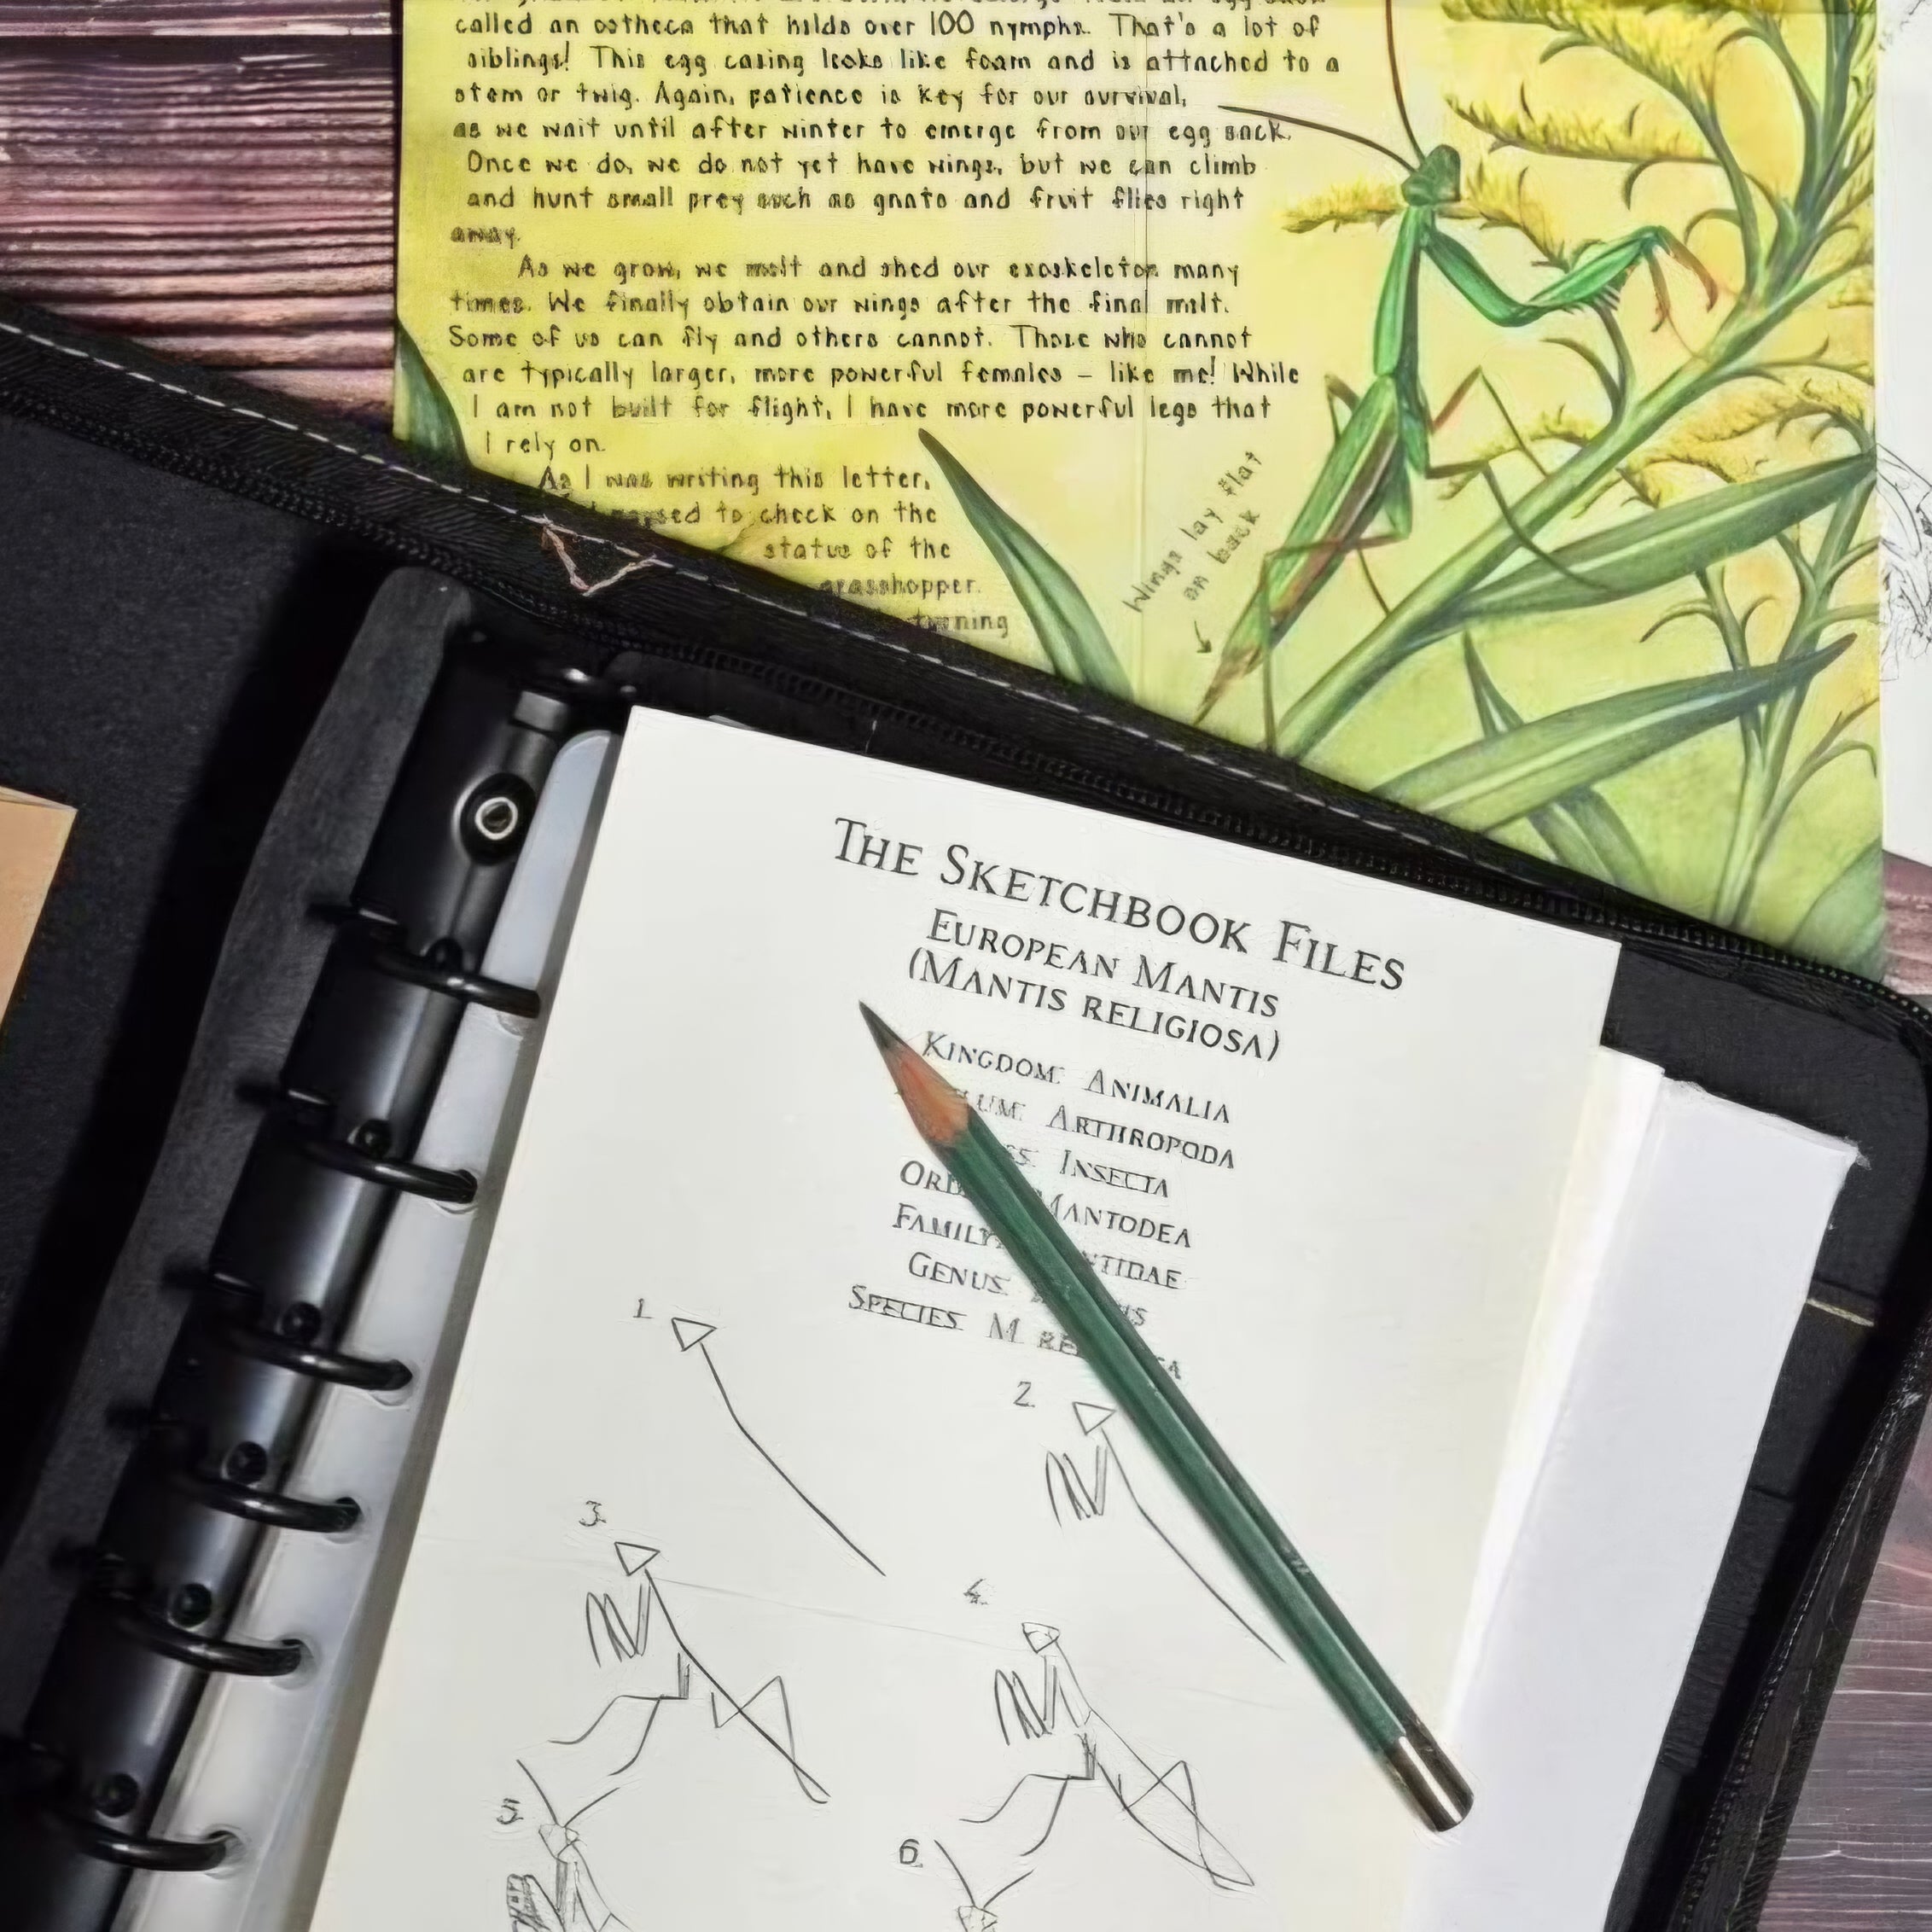 called an ootheca that holds over 100 nymphs. That's a lot of
siblings! This egg casing looks like foam and is attached to a
stem or twig. Again, patience is key for our survival,
as we wait until after winter to emerge from our egg sack.
Once we do, we do not yet have wings, but we can climb
and hunt small prey such as gnats and fruit flies right
away.
As we grow, we molt and shed our exoskeleton many
times. We finally obtain our wings after the final molt.
Some of us can fly and others cannot. Those who cannot
are typically larger, more powerful females – like me! While
I am not built for flight, I have more powerful legs that
I rely on.
As I was writing this letter,
I paused to check on the
status of the
grasshopper.
turning
Wings lay flat
on back
The Sketchbook Files
European Mantis
(Mantis religiosa)
Kingdom: Animalia
Arthropoda
Insecta
Mantodea
Family:
Genus:
Species: M.
1.
2.
3.
4.
5.
6.